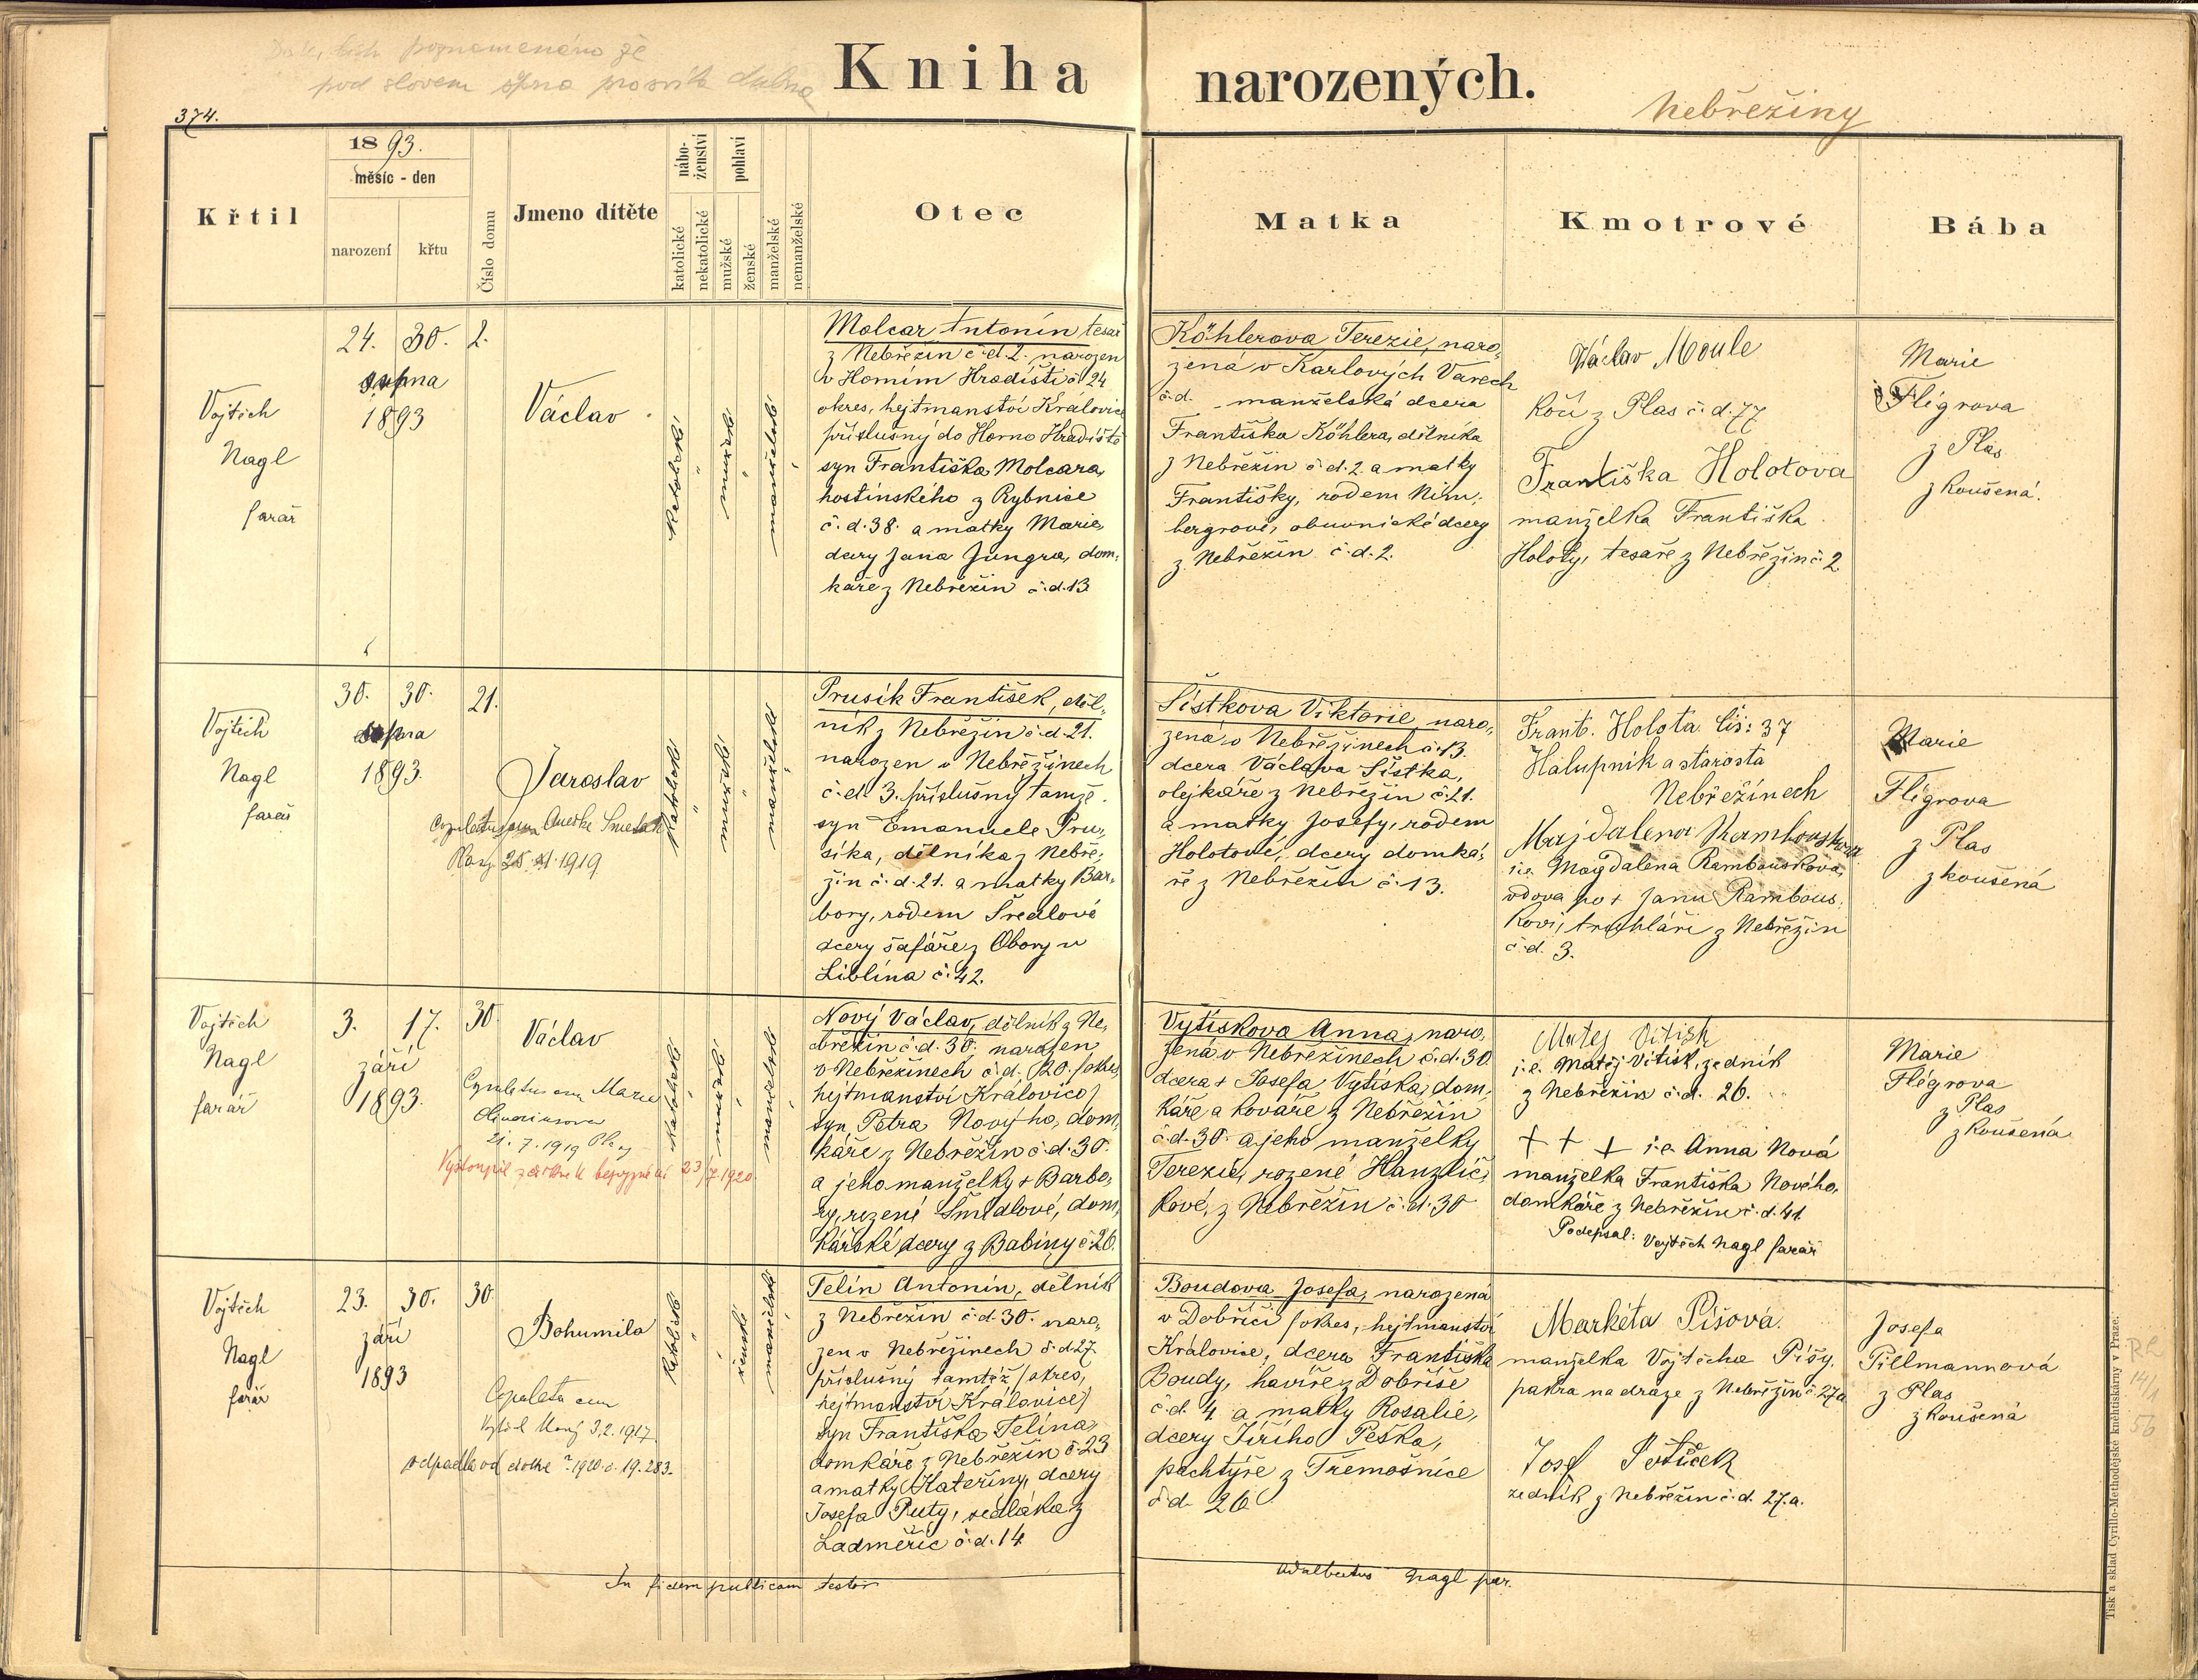 poznamenáno že
pod slovem srpna
Kniha narozených.
374.
Nebřežiny
Křtil
1893.
měsíc - den
narození
křtu
Číslo domu
Jmeno dítěte
nábo-
ženství
katolické
nekatolické
pohlaví
mužské
ženské
manželské
nemanželské
Otec
Matka
Kmotrové
Bába
Vojtěch
Nagl
farář
24. 30. 2.
srpna
1893
Václav
katolické
mužské
manželské
Molcar Antonín, tesař
z Nebřežin č.d. 2. narozen
v Horním Hradišti č 24
okres, hejtmanství Kralovice
příslušný do Horno Hradiště
syn Františka Molcara,
hostinského z Rybnice
č.d. 38. a matky Marie,
dcery Jana Jungra, dom-
káře z Nebřežin č.d. 13
Köhlerova Terezie, naro-
zená v Karlových Varech
č.d. - manželská dcera
Františka Köhlera, dělníka
z Nebřežin č.d. 2. a matky
Františky, rodem Nim-
bergrové, obuvnické dcery
z Nebřežin č.d. 2.
Václav Moule
Kočí z Plas č.d. 77
Františka Holotova
manželka Františka
Holoty, tesaře z Nebřežin č. 2
Marie
Flígrova
z Plas
zkoušená.
Vojtěch
Nagl
farář
30. 30. 21.
srpna
1893.
Jaroslav
1919
katolické
mužské
manželské
Prusík František, děl-
ník z Nebřežin č.d. 21.
narozen v Nebřežinech
č.d. 3. příslušný tamže.
syn Emanuele Pru-
síka, dělníka z Nebře-
žin č.d. 21. a matky Bar-
bory, rodem Šredlové
dcery šafáře z Obory u
Liblína č. 42.
Šístkova Viktorie, naro-
zená v Nebřežinech č. 13.
dcera Václava Šístka,
olejkáře z Nebřežin č. 21.
a matky Josefy, rodem
Holotové, dcery domká-
ře z Nebřežin č. 13.
Frant. Holota čís: 37
Halupník a starosta
Nebřežinech
Majdalena Rambouskova
i.e. Magdalena Rambouskova,
vdova po + Janu Rambous-
kovi, truhláři z Nebřežin
č.d. 3.
Marie
Flígrova
z Plas
zkoušená
Vojtěch
Nagl
farář
3. 17. 30.
září
1893.
Václav
Copulatus cum Marie
21. 7. 1919
Vystoupil z církve k bezvyznání 23/7 1920
katolické
mužské
manželské
Nový Václav, dělník z Ne-
břežin č.d. 30. narozen
v Nebřežinech č.d. 20. (okres,
hejtmanství Kralovice)
syn Petra Nového, dom-
káře z Nebřežin č.d. 30.
a jeho manželky + Barbo-
ry, rozené Šmídlové, dom-
kářské dcery z Babiny č 26.
Vytiskova Anna, naro-
zená v Nebřežinech č.d. 30.
dcera + Josefa Vytiska, dom-
káře a kováře z Nebřežin
č.d. 30. a jeho manželky
Terezie, rozené Hanzlíč-
kové, z Nebřežin č.d. 30
Matej Vitisk
i.e. Matěj Vitisk, zedník
z Nebřežin č.d. 26.
+ + + i.e. Anna Nová
manželka Františka Nového,
domkáře z Nebřežin č.d. 41.
Podepsal: Vojtěch Nagl farář
Marie
Flégrova
z Plas
zkoušená
Vojtěch
Nagl
farář
23. 30. 30.
září
1893
Bohumila
Copulata cum
3.2.1917
odpadla od církve r. 1920 č. 19.283.
katolické
ženské
manželské
Telín Antonín, dělník
z Nebřežin č.d. 30. naro-
zen v Nebřežinech č.d 27
příslušný tamtéž (okres,
hejtmanství Kralovice)
syn Františka Telína,
domkáře z Nebřežin č. 23
a matky Kateřiny, dcery
Josefa Puty, sedláka z
Ladměřic č.d. 14.
Boudova Josefa, narozená
v Dobříči (okres, hejtmanství
Kralovice, dcera Františka
Boudy, havíře z Dobříše
č.d. 4 a matky Rosalie,
dcery Jiřího Peška,
pachtýře z Třemošnice
č.d. 26
Markéta Pišová.
manželka Vojtěcha Pišy,
pakra na dráze z Nebřežin č. 27a
Josef
zedník z Nebřežin č.d. 27.a.
Josefa
Pillmannová
z Plas
zkoušená
In fidem publicam testor
Adalbertus Nagl par.
14/1
56
Tisk a sklad Cyrillo-Methodějské knihtiskárny v Praze.